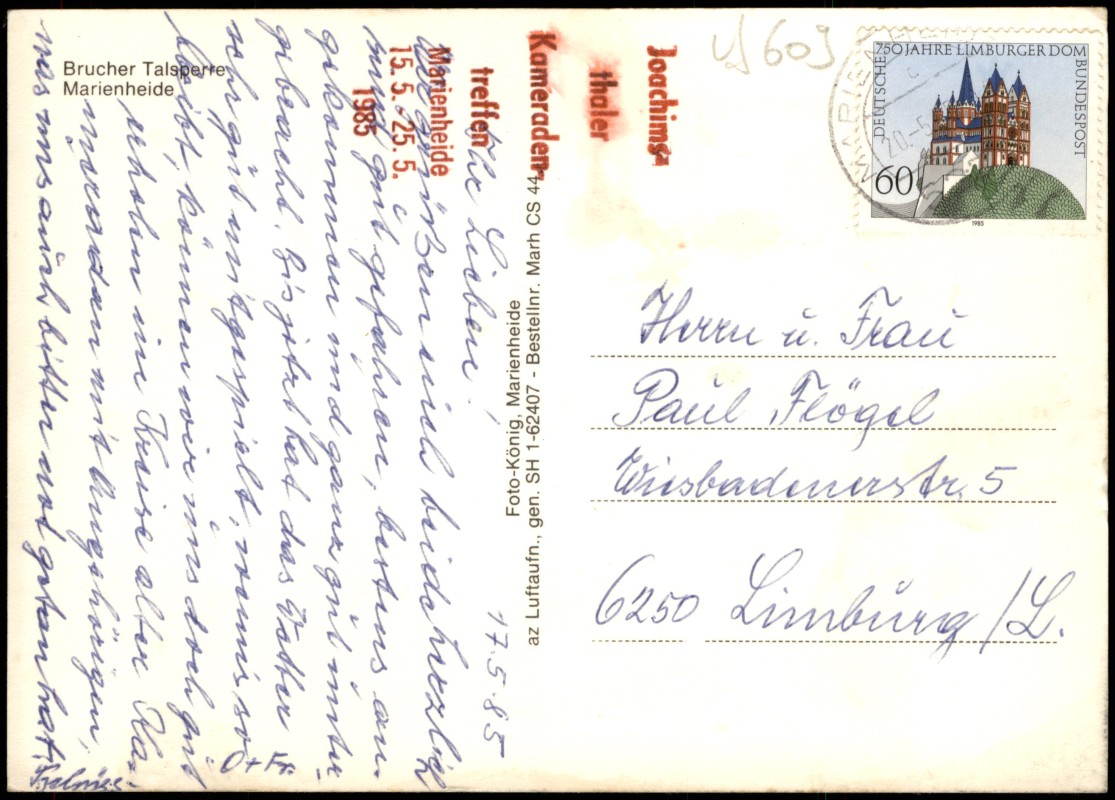 Brucher Talsperre
Marienheide
17.5.85
Ihr Lieben!
wir grüßen euch beide herzlich
sind gut gefahren, bestens an-
gekommen und ganz gut unter-
gebracht. Bis jetzt hat das Wetter
sehr gut mitgespielt, wenn es so
bleibt, können wir uns doch gut
erholen im Kreise alter Ka-
meraden mit Angehörigen,
was uns auch bitter not getan hat.
O + Fr.
Joachims-
thaler
Kameraden-
treffen
Marienheide
15. 5. - 25. 5.
1985
Foto-König, Marienheide
az Luftaufn., gen. SH 1-62407 - Bestellnr. Marh CS 44
609
750 JAHRE LIMBURGER DOM
DEUTSCHE BUNDESPOST
60
1985
MARIENHEIDE
20.-5
Herrn u. Frau
Paul Flögel
Wiesbadenerstr. 5
6250 Limburg/L.